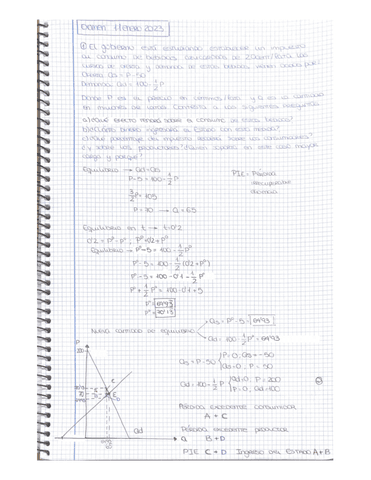 Examen 11 enero 2023
① El gobierno está estudiando establecer un impuesto
al consumo de bebidas azucaradas de 20cent/lata. Las
curvas de oferta y demanda de estas bebidas vienen dadas por:
Oferta: Qs = P - 50
Demanda: Qd = 100 - 1/2 P
Donde P es el precio en céntimos/lata y Q es la cantidad
en millones de latas. Contesta a las siguientes preguntas
a) ¿Qué efecto tendrá sobre el consumo de estas bebidas?
b) ¿Cuánto dinero ingresará el Estado con esta medida?
c) ¿Qué porcentaje de impuesto recaerá sobre los consumidores?
¿y sobre los productores? ¿Quién soporta en este caso mayor
carga y porqué?
Equilibrio → Qd = Qs
P - 5 = 100 - 1/2 P
PIE = Pérdida
irrecuperable
eficiencia
3/2 P = 105
P = 70 → Q = 65
Equilibrio en t → t = 0'2
0'2 = Pᴰ - Pˢ ; Pᴰ = 0'2 + Pˢ
Equilibrio → Pˢ - 5 = 100 - 1/2 Pᴰ
Pˢ - 5 = 100 - 1/2 (0'2 + Pˢ)
Pˢ - 5 = 100 - 0'1 - 1/2 Pˢ
Pˢ + 1/2 Pˢ = 100 - 0'1 + 5
Pˢ = 69'93
Pᴰ = 70'13
Nueva cantidad de equilibrio
Qs = Pˢ - 5 = 64'93
Qd = 100 - 1/2 Pᴰ = 64'93
Qs = P - 50 { P = 0, Qs = -50
Qs = 0, P = 50
Qd = 100 - 1/2 P { Qd = 0, P = 200
P = 0, Qd = 100
P
200
E
Qd
Q
Pérdida excedente consumidor
A + C
Pérdida excedente productor
B + D
PIE C + D Ingreso del ESTADO A + B